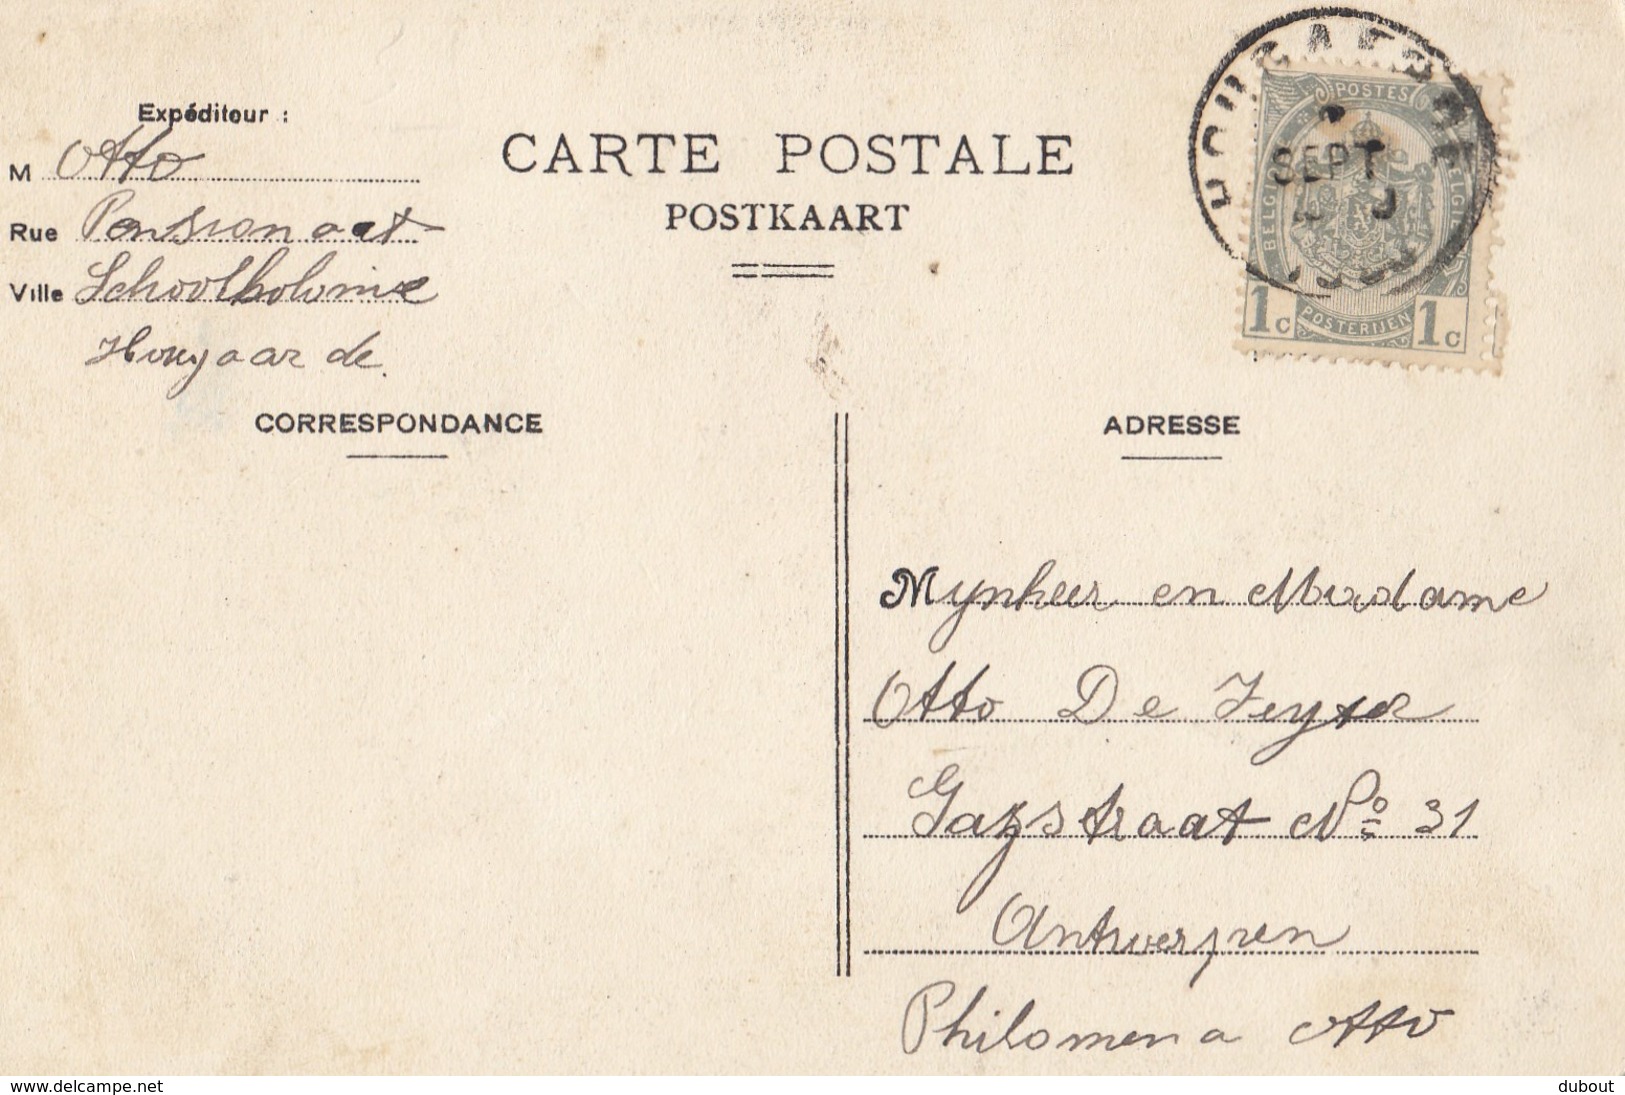 Expéditeur :
M Otto
Rue Pensionaat
Ville Schoolkolonie
Hougaarde
CARTE POSTALE
POSTKAART
HOUGAERDE
SEPT
POSTES
BELGIQUE
BELGIË
1c POSTERIJEN 1c
CORRESPONDANCE
ADRESSE
Mynheer en Madame
Otto De Zeyter
Gazstraat No 31
Antwerpen
Philomena Otto
www.delcampe.net
dubout